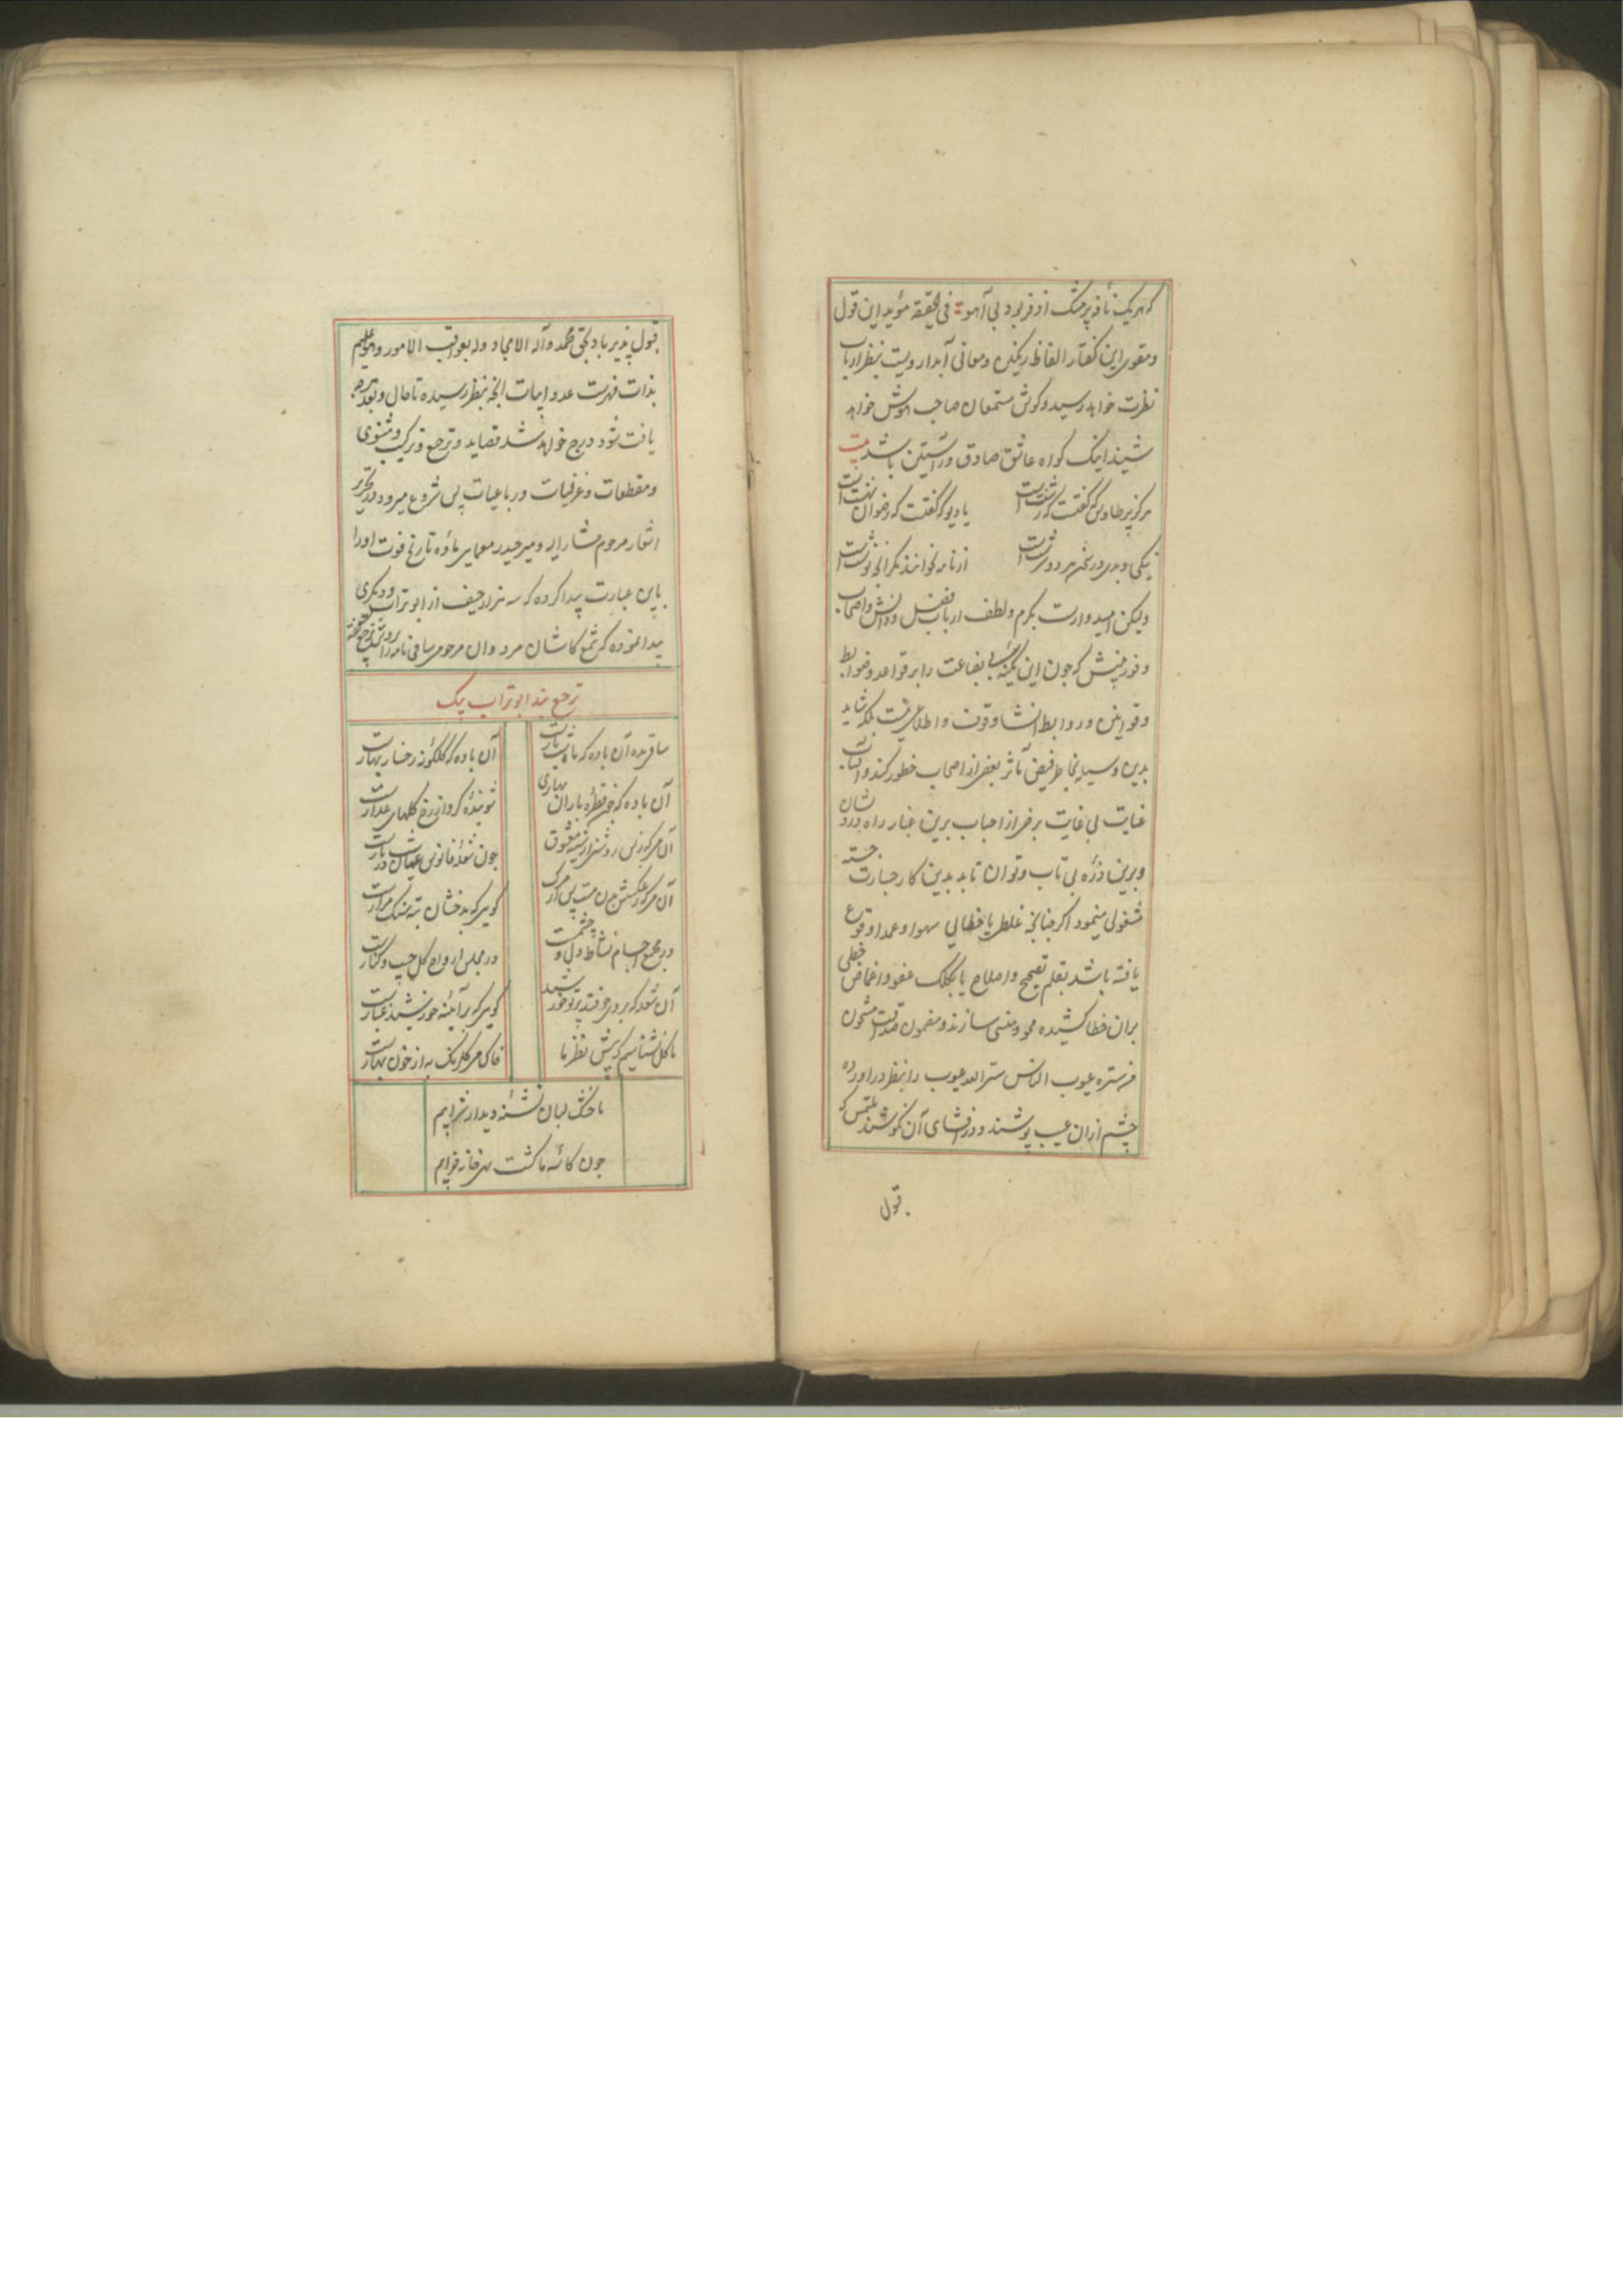 که هر یک نافه پر مشک از فر بود بی آهو فی الحقیقة مؤید این قول
و مقوی این گفتار الفاظ رنگین و معانی آبدار ویست بنظر ارباب
نظرت خواهد رسید و کوش مستمعان صاحب هوش خواهد
شنید اینک کواه عاشق صادق در آستین باشد بیت
هرگز پر طاوس که گفتت که زشتست
یا دیو که گفتت که رضوان بهشتست
نیکی و بدی در سخن هر دو سرشتست
از نامه نخوانند مکر آنچه نوشتست
ولیکن امیدوارست بکرم و لطف ارباب فضل و دانش و اصحاب
و فور بینش که چون این کمینه بی بضاعت را بر قواعد و ضوابط
و قوانین و روابط انشا وقوف و اطلاعی نیست بلکه شاید
بدین وسیله بخاطر فیض مآثر بعضی از اصحاب خطور کند و التفات
عنایت بی غایت برخی از احباب برین غبار راه دردشان
و برین ذره بی تاب و توان تابد بدین کار جسارت جسته
مشغولی مینمود اکر چنانچه غلطی یا خطائی سهوا و عمدا وقوع
یافته باشد بقلم تصحیح و اصلاح یا بکلک عفو و اغماض خطی
بران خطا کشیده محو و منسی سازند و مضمون صداقت مشحون
من ستر عیوب الناس ستر الله عیوبه را بنظر در آورده
چشم ازان عیب پوشند و در افشای آن نکوشند ملتمس که
قبول
قبول پذیر باد بحق محمد و آله الامجاد و له بعواقب الامور و هو علیم
بذات فهرست عدد ابیات آنچه بنظر رسیده تا حال و بعد هرچه
یافت شود درج خواهد شد قصاید و ترجیع و ترکیب و مثنوی
و مقطعات و غزلیات و رباعیات پس شروع میرود در تحریر
اشعار مرحوم مشار الیه و میر حیدر معمایی ماده تاریخ فوت او را
باین عبارت پیدا کرده که سه هزار حیف از ابو تراب و دیگری
پیدا نموده که شمع کاشان مرد و ان مرحوم ساقی نامه را
ترجیع بند ابو تراب بیک
ساقی بده آن باده که
آن باده که گلگونه رخسار بهارست
آن باده که چون قطره باران بهاری
شوینده کرد از رخ گلهای عذارست
آن می که ز بس روشنی از سینه معشوق
چون شعله فانوس عیان در شب تارست
آن می که ز عکسش من مست پس از مرک
گویی که بدخشان ته سنک مزارست
در مجمع اجسام نشاط دل و چشمست
در مجلس ارواح گل جیب و کنارست
آن شعله که بر وی چو فتد پرتو خورشید
گویی که بر آئینه خورشید غبارست
ما گل نشناسیم که پیش نظر ما
خاک می گلرنک به از خون بهارست
ما خشک لبان تشنه دیدار شرابیم
چون کاسه ما گشت تهی خانه خرابیم